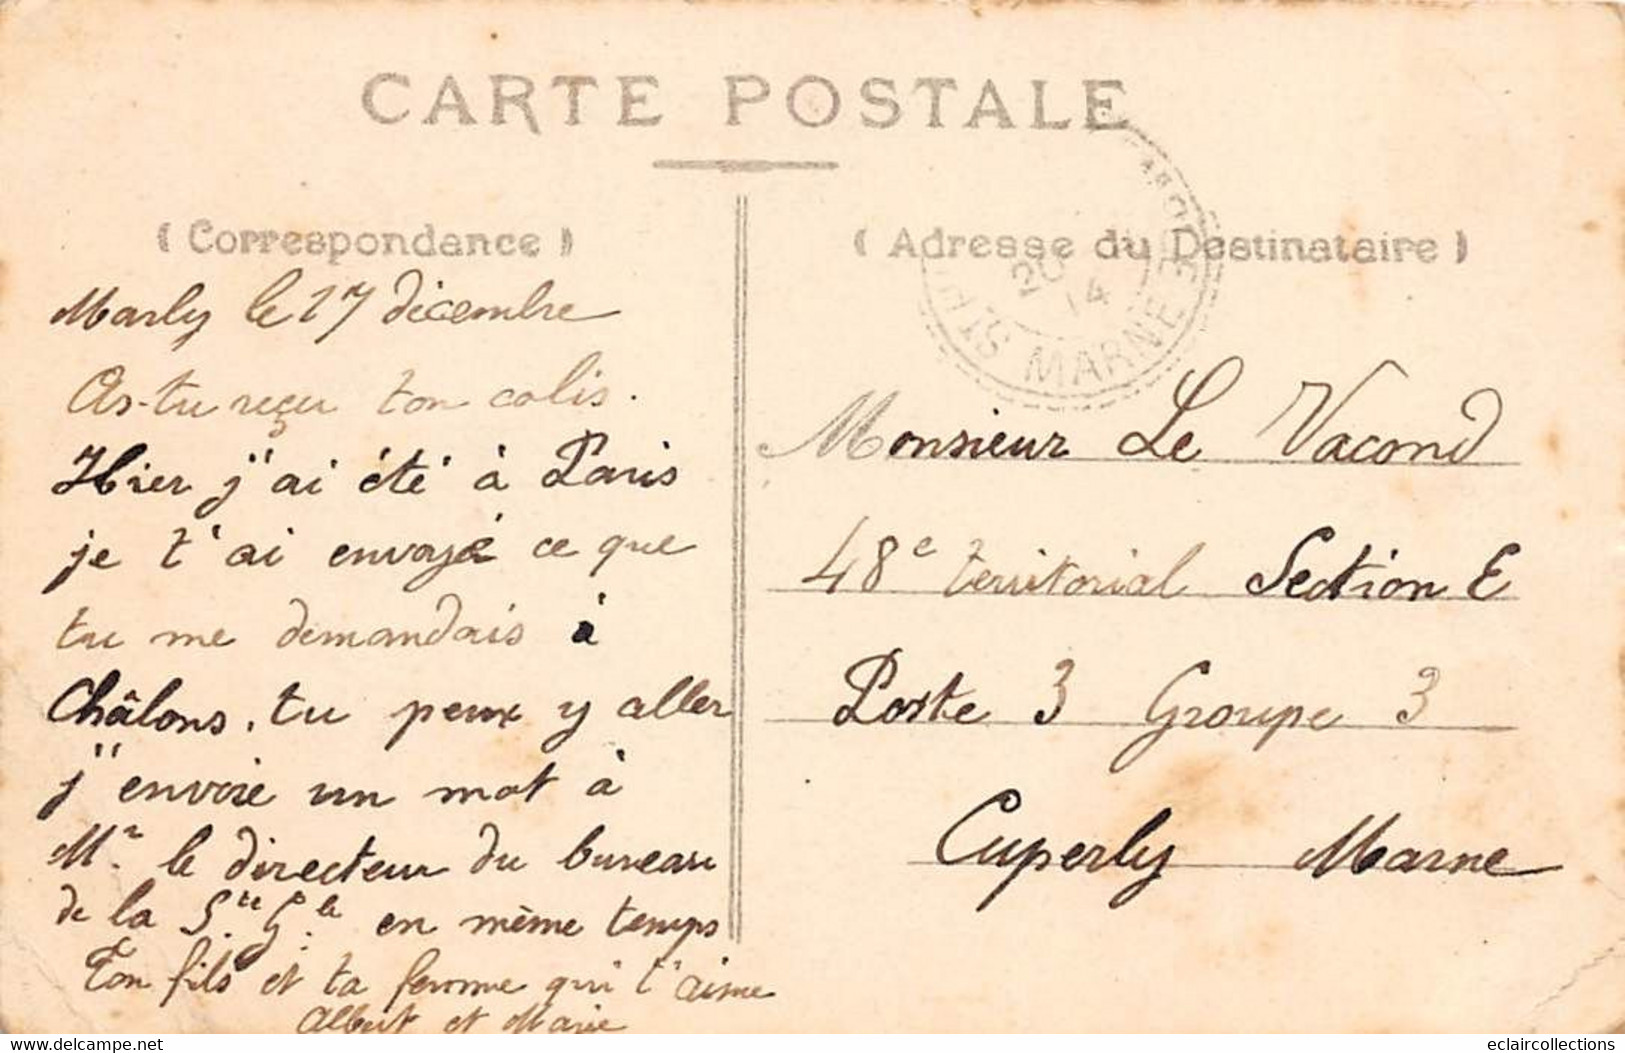 CARTE POSTALE
( Correspondance )
Marly le 17 décembre
As-tu reçu ton colis.
Hier j'ai été à Paris
je t'ai envoyé ce que
tu me demandais à
Châlons, tu peux y aller
j'envoie un mot à
Mr. le directeur du bureau
de la S.té G.le en même temps
Ton fils et ta femme qui t'aime
Albert et Marie
( Adresse du Destinataire )
20
14
MARNE
Monsieur Le Vacond
48e territorial Section E
Poste 3 Groupe 3
Cuperly Marne
delcampe.net
eclaircollections